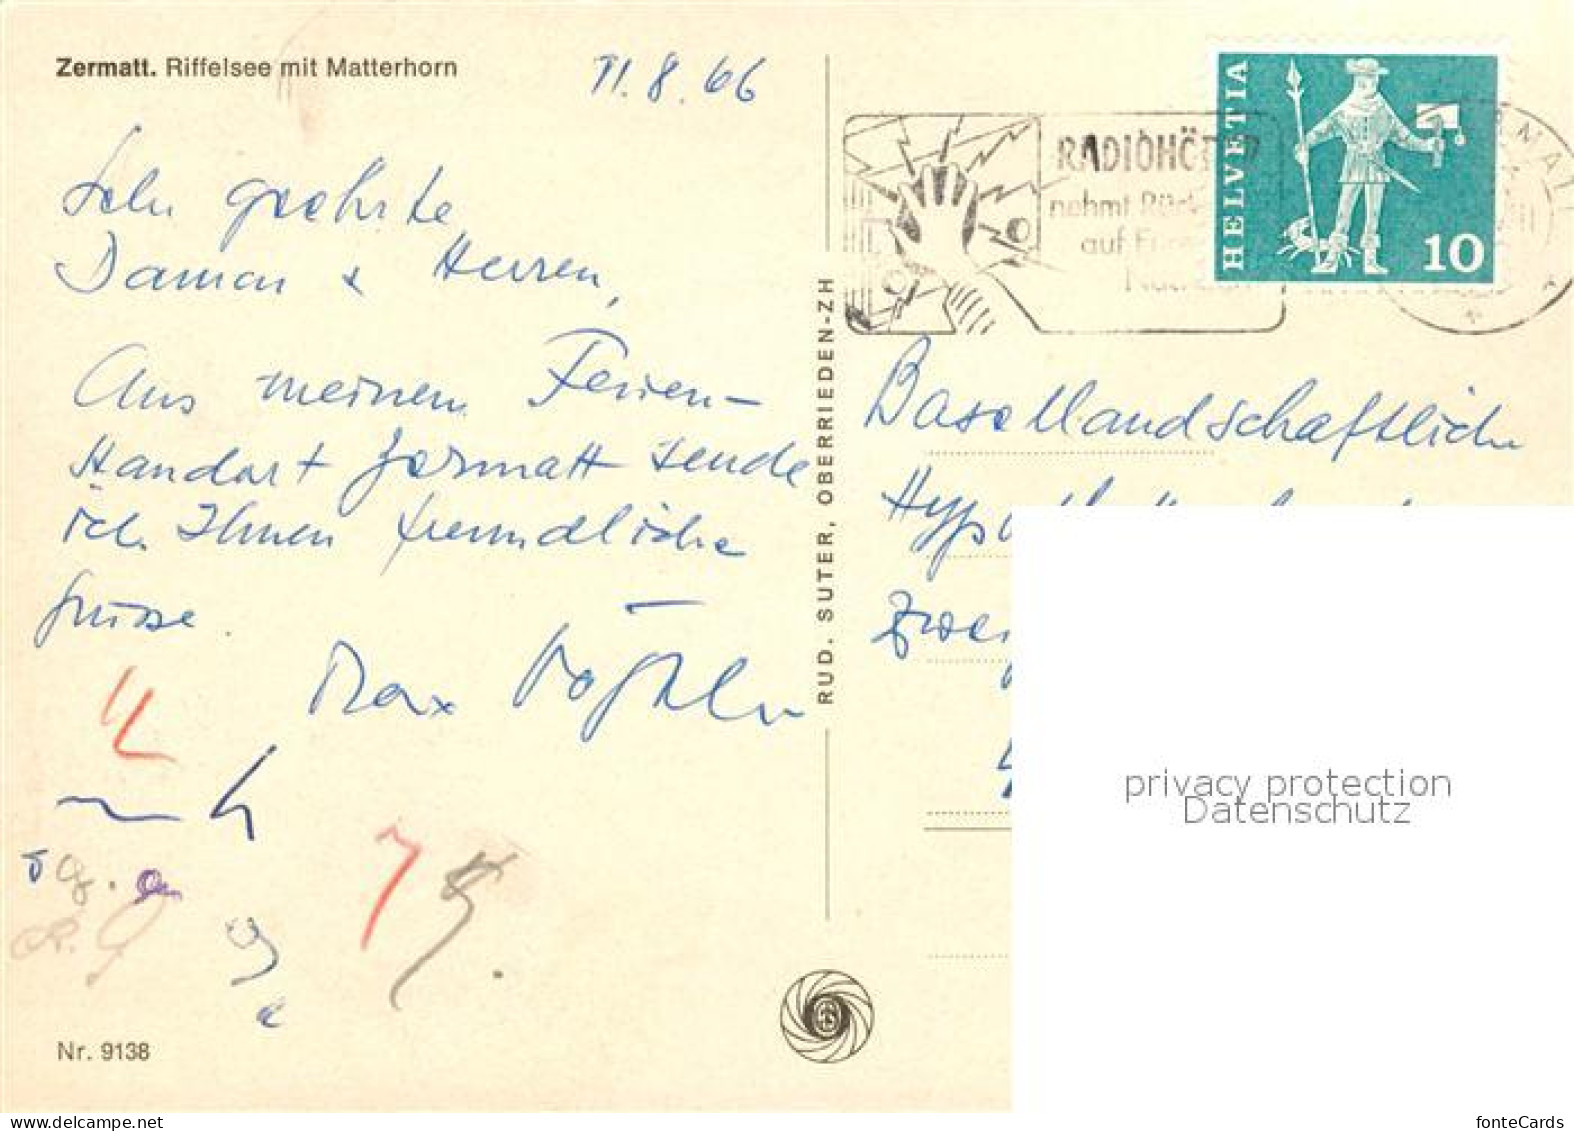 Zermatt. Riffelsee mit Matterhorn
11.8.66
Sehr geehrte
Damen & Herren,
Aus meinem Ferien-
standort Zermatt sende
ich Ihnen freundliche
Grüsse.
Max
Nr. 9138
RUD. SUTER, OBERRIEDEN-ZH
RADIOHÖ
nehmt Rück
auf
HELVETIA
10
Basellandschaftliche
privacy protection
Datenschutz
www.delcampe.net
fonteCards